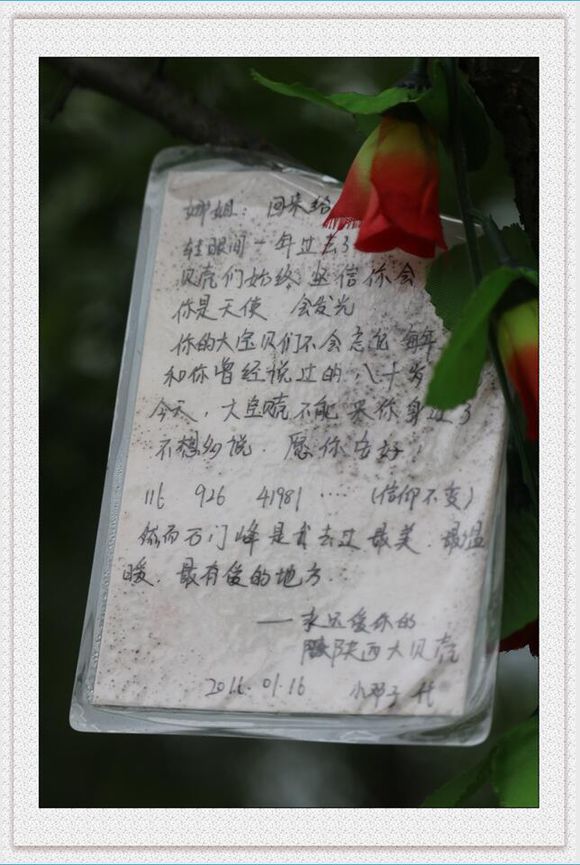 姚姐：回来给
转眼间一年过去了
贝壳们始终坚信你会
你是天使 会发光
你的大宝贝们不会忘记 每年
和你曾经说过的 八十岁
今天，大贝壳不能来你身边了
不想多说，愿你安好！
116 926 41981 …… (信仰不变)
然而石门峰是我去过最美、最温
暖、最有爱的地方.
——永远爱你的
陕西大贝壳
2016.01.16 小邓子 代